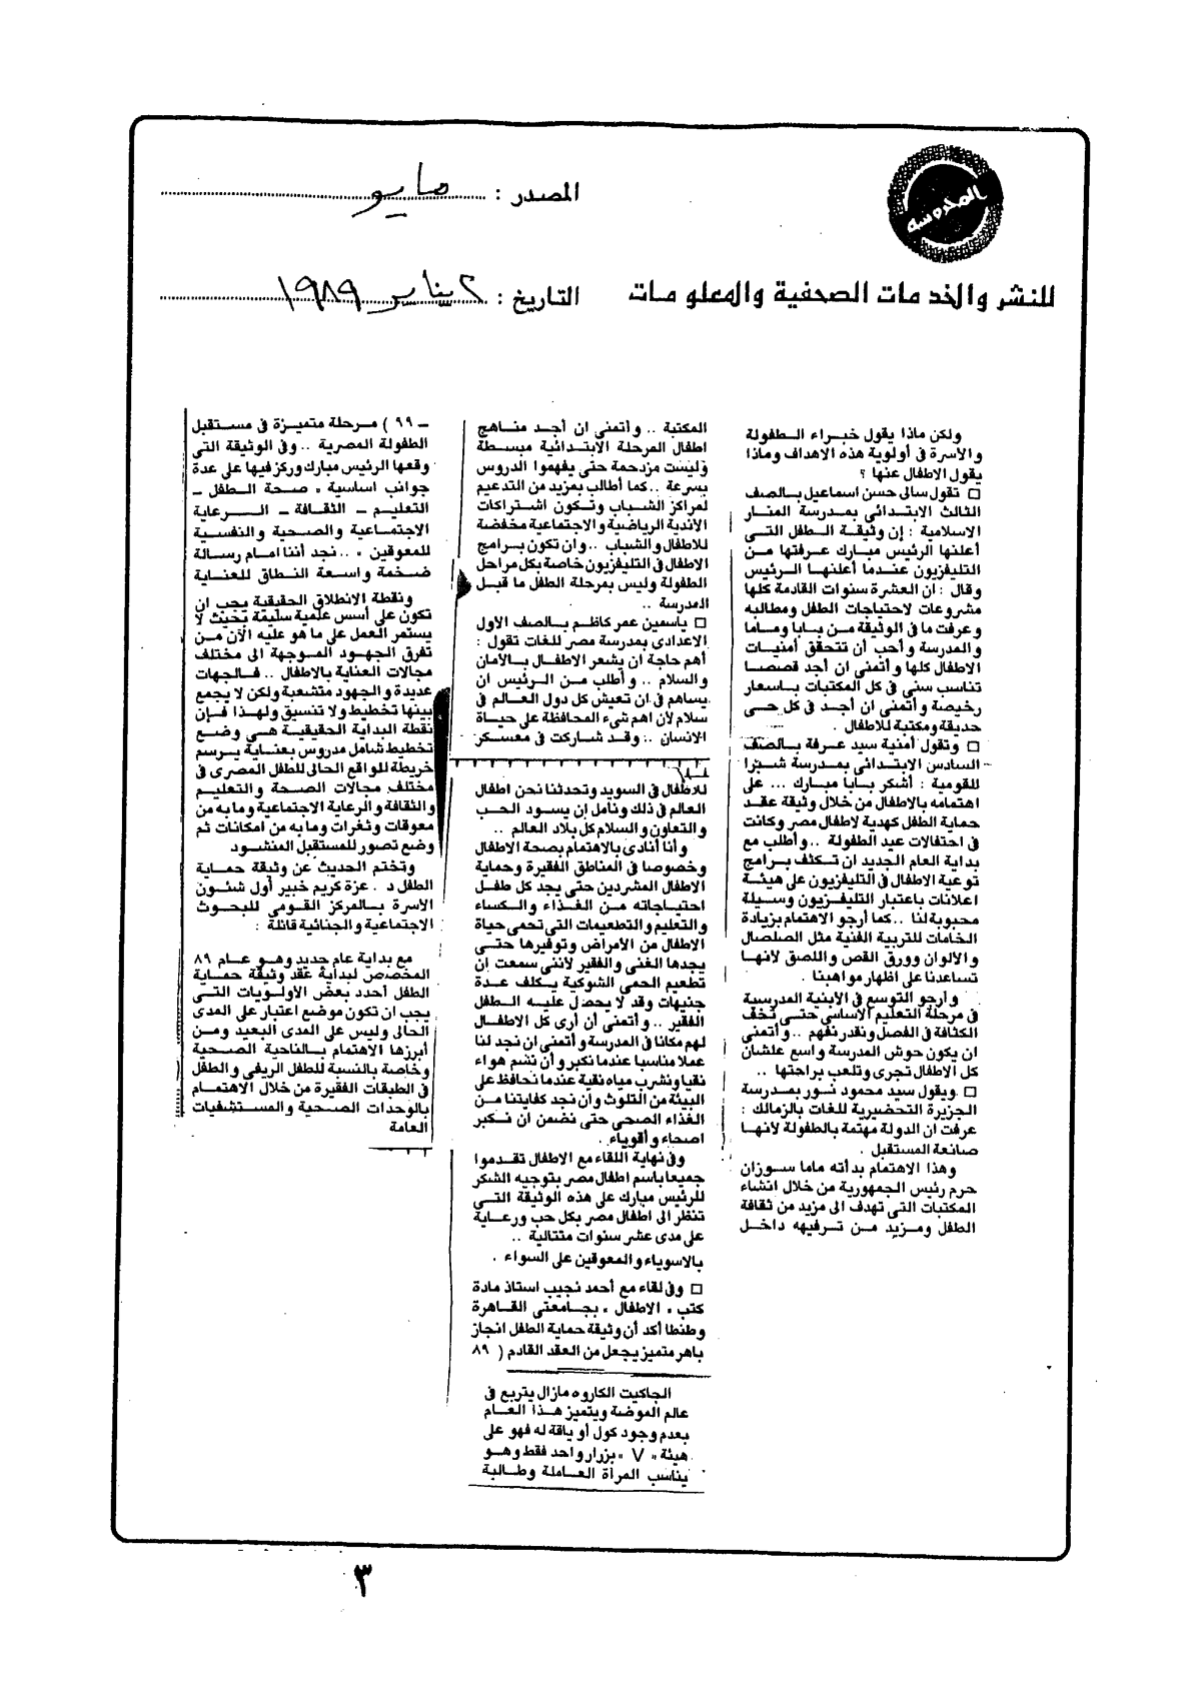 المحروسه
للنشر والخدمات الصحفية والمعلومات
المصدر : مايو
التاريخ : ٢ يناير ١٩٨٩
ولكن ماذا يقول خبراء الطفولة
والأسرة فى أولوية هذه الاهداف وماذا
يقول الاطفال عنها ؟
□ تقول سالى حسن اسماعيل بالصف
الثالث الابتدائى بمدرسة المنار
الاسلامية : إن وثيقة الطفل التى
أعلنها الرئيس مبارك عرفتها من
التليفزيون عندما أعلنها الرئيس
وقال : ان العشرة سنوات القادمة كلها
مشروعات لاحتياجات الطفل ومطالبه
وعرفت ما فى الوثيقة من بابا وماما
والمدرسة وأحب أن تتحقق أمنيات
الاطفال كلها وأتمنى ان أجد قصصا
تناسب سنى فى كل المكتبات باسعار
رخيصة وأتمنى ان أجد فى كل حى
حديقة ومكتبة للاطفال .
□ وتقول أمنية سيد عرفة بالصف
السادس الابتدائى بمدرسة شبرا
القومية : أشكر بابا مبارك ... على
اهتمامه بالاطفال من خلال وثيقة عقد
حماية الطفل كهدية لاطفال مصر وكانت
فى احتفالات عيد الطفولة .. وأطلب مع
بداية العام الجديد ان تكثف برامج
توعية الاطفال فى التليفزيون على هيئة
اعلانات باعتبار التليفزيون وسيلة
محبوبة لنا .. كما أرجو الاهتمام بزيادة
الخامات للتربية الفنية مثل الصلصال
والالوان وورق القص واللصق لانها
تساعدنا على اظهار مواهبنا .
وأرجو التوسع فى الابنية المدرسية
فى مرحلة التعليم الاساسى حتى تخف
الكثافة فى الفصل ونقدر نفهم .. وأتمنى
ان يكون حوش المدرسة واسع علشان
كل الاطفال تجرى وتلعب براحتها ..
□ ويقول سيد محمود نور بمدرسة
الجزيرة التحضيرية للغات بالزمالك :
عرفت ان الدولة مهتمة بالطفولة لانها
صانعة المستقبل .
وهذا الاهتمام بدأته ماما سوزان
حرم رئيس الجمهورية من خلال انشاء
المكتبات التى تهدف الى مزيد من ثقافة
الطفل ومزيد من ترفيهه داخل
المكتبة .. وأتمنى ان أجد مناهج
اطفال المرحلة الابتدائية مبسطة
وليست مزدحمة حتى يفهموا الدروس
بسرعة .. كما أطالب بمزيد من التدعيم
لمراكز الشباب وتكون اشتراكات
الأندية الرياضية والاجتماعية مخفضة
للاطفال والشباب .. وان تكون برامج
الاطفال فى التليفزيون خاصة بكل مراحل
الطفولة وليس بمرحلة الطفل ما قبل
المدرسة ..
□ ياسمين عمر كاظم بالصف الأول
الاعدادى بمدرسة مصر للغات تقول :
أهم حاجة ان يشعر الاطفال بالأمان
والسلام .. وأطلب من الرئيس ان
يساهم فى ان تعيش كل دول العالم فى
سلام لأن اهم شىء المحافظة على حياة
الانسان .. وقد شاركت فى معسكر
للاطفال فى السويد وتحدثنا نحن اطفال
العالم فى ذلك ونأمل ان يسود الحب
والتعاون والسلام كل بلاد العالم ..
وأنا أنادى بالاهتمام بصحة الاطفال
وخصوصا فى المناطق الفقيرة وحماية
الاطفال المشردين حتى يجد كل طفل
احتياجاته من الغذاء والكساء
والتعليم والتطعيمات التى تحمى حياة
الاطفال من الأمراض وتوفيرها حتى
يجدها الغنى والفقير لاننى سمعت ان
تطعيم الحمى الشوكية يكلف عدة
جنيهات وقد لا يحصل عليه الطفل
الفقير .. وأتمنى أن أرى كل الاطفال
لهم مكانا فى المدرسة وأتمنى ان نجد لنا
عملا مناسبا عندما نكبر وأن نشم هواء
نقيا ونشرب مياه نقية عندما نحافظ على
البيئة من التلوث وأن نجد كفايتنا من
الغذاء الصحى حتى نضمن ان نكبر
اصحاء وأقوياء .
وفى نهاية اللقاء مع الاطفال تقدموا
جميعا باسم اطفال مصر بتوجيه الشكر
للرئيس مبارك على هذه الوثيقة التى
تنظر الى اطفال مصر بكل حب ورعاية
على مدى عشر سنوات متتالية ..
بالاسوياء والمعوقين على السواء .
□ وفى لقاء مع أحمد نجيب استاذ مادة
كتب « الاطفال » بجامعتى القاهرة
وطنطا أكد أن وثيقة حماية الطفل انجاز
باهر متميز يجعل من العقد القادم ( ٨٩
الجاكيت الكاروه مازال يتربع فى
عالم الموضة ويتميز هذا العام
بعدم وجود كول أو ياقة له فهو على
هيئة « V » بزرار واحد فقط وهو
يناسب المرأة العاملة وطالبة
ـ ٩٩ ) مرحلة متميزة فى مستقبل
الطفولة المصرية .. وفى الوثيقة التى
وقعها الرئيس مبارك وركز فيها على عدة
جوانب اساسية « صحة الطفل ـ
التعليم ـ الثقافة ـ الرعاية
الاجتماعية والصحية والنفسية
للمعوقين » .. نجد أننا امام رسالة
ضخمة واسعة النطاق للعناية
ونقطة الانطلاق الحقيقية يجب ان
تكون على أسس علمية سليمة بحيث لا
يستمر العمل على ما هو عليه الآن من
تفرق الجهود الموجهة الى مختلف
مجالات العناية بالاطفال .. فالجهات
عديدة والجهود متشعبة ولكن لا يجمع
بينها تخطيط ولا تنسيق ولهذا فإن
نقطة البداية الحقيقية هى وضع
تخطيط شامل مدروس بعناية يرسم
خريطة للواقع الحالى للطفل المصرى فى
مختلف مجالات الصحة والتعليم
والثقافة والرعاية الاجتماعية وما به من
معوقات وثغرات وما به من امكانات ثم
وضع تصور للمستقبل المنشود
وتختم الحديث عن وثيقة حماية
الطفل د . عزة كريم خبير أول شئون
الاسرة بالمركز القومى للبحوث
الاجتماعية والجنائية قائلة :
مع بداية عام جديد وهو عام ٨٩
المخصص لبداية عقد وثيقة حماية
الطفل أحدد بعض الأولويات التى
يجب ان تكون موضع اعتبار على المدى
الحالى وليس على المدى البعيد ومن
أبرزها الاهتمام بالناحية الصحية
وخاصة بالنسبة للطفل الريفى والطفل
فى الطبقات الفقيرة من خلال الاهتمام
بالوحدات الصحية والمستشفيات
العامة
٣